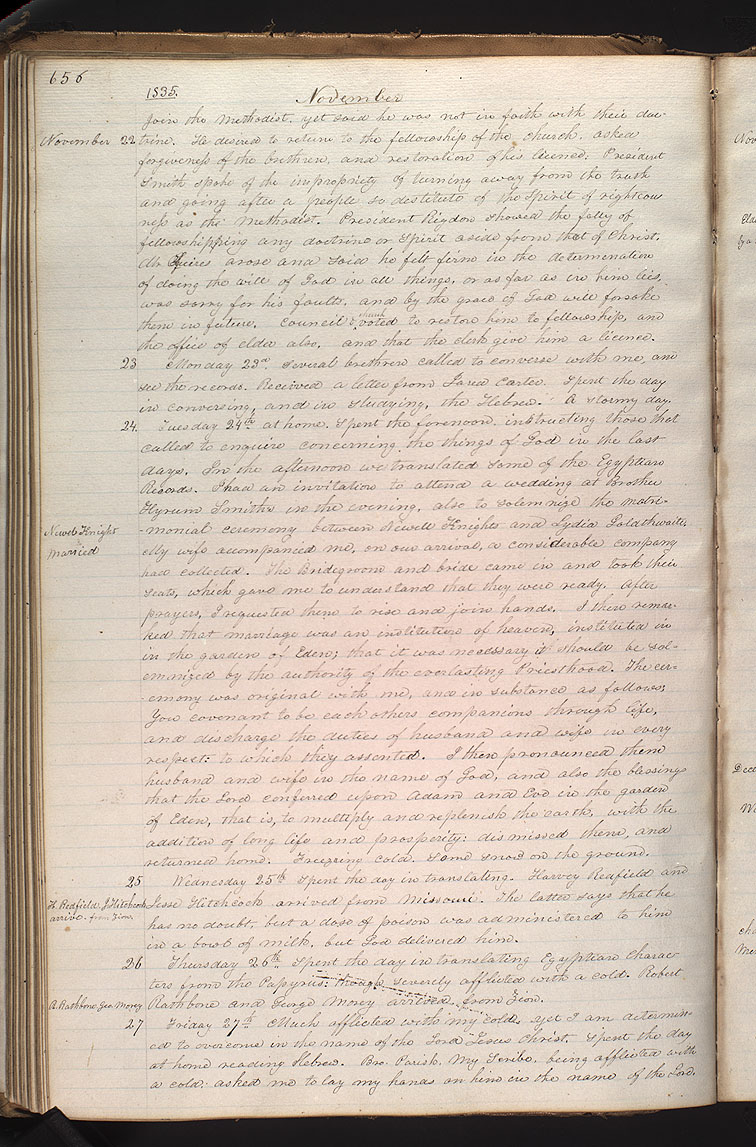 656
1835.
November
join the Methodist, yet said he was not in faith with their doc-
November 22 trine. He desired to return to the fellowship of the church, asked
forgiveness of the brethren, and restoration of his licence. President
Smith spoke of the impropriety of turning away from the truth
and going after a people so destitute of the spirit of righteous
ness as the Methodist. President Rigdon showed the folly of
fellowshipping any doctrine or spirit aside from that of Christ.
Mr Squires arose and said he felt firm in the determination
of doing the will of God in all things, or as far as in him lies,
was sorry for his faults, and by the grace of God will forsake
them in future. Council & church voted to restore him to fellowship, and
the office of elder also, and that the clerk give him a licence.
23 Monday 23rd. Several brethren called to converse with me, and
see the records. Recieved a letter from Jared Carter. Spent the day
in conversing, and in studying, the Hebrew. A stormy day.
24. Tuesday 24th at home. Spent the forenoon instructing those that
called to enquire concerning the things of God in the last
days. In the afternoon we translated some of the Egyptian
Records. I had an invitation to attend a wedding at Brother
Hyrum Smith's in the evening, also to solemnize the matri-
Newel Knight married
-monial ceremony between Newell Knights and Lydia Goldthwaite,
My wife accompanied me, on our arrival, a considerable company
had collected. The Bridegroom and bride came in and took their
seats, which gave me to understand that they were ready. After
prayers, I requested them to rise and join hands. I then remar-
ked that marriage was an institution of heaven, instituted in
in the garden of Eden; that it was necessary it should be sol-
emnized by the authority of the everlasting Priesthood. The cer-
emony was original with me, and in substance as follows;
You covenant to be each others companions through life,
and discharge the duties of husband and wife in every
respect: to which they assented. I then pronounced them
husband and wife in the name of God, and also the blessings
that the Lord conferred upon Adam and Eve in the garden
of Eden, that is, to multiply and replenish the earth, with the
addition of long life and prosperity: dismissed them, and
returned home. Freezing cold. Some snow on the ground.
25 Wednesday 25th Spent the day in translating. Harvey Redfield and
H. Redfield, J Hitchcock arrive from Zion.
Jesse Hitchcock arrived from Missouri. The latter says that he
has no doubt, but a dose of poison was administered to him
in a bowl of milk, but God delivered him.
26 Thursday 26th. Spent the day in translating Egyptian charac-
ters from the Papyrus: though severely afflicted with a cold. Robert
R. Rathbone Geo Morey
Rathbone and George Morey arrived from Zion.
27 Friday 27th Much afflicted with my cold, yet I am determin-
ed to overcome in the name of the Lord Jesus Christ. Spent the day
at home reading Hebrew. Bro. Parish, My Scribe, being afflicted with
a cold: asked me to lay my hands on him in the name of the Lord.